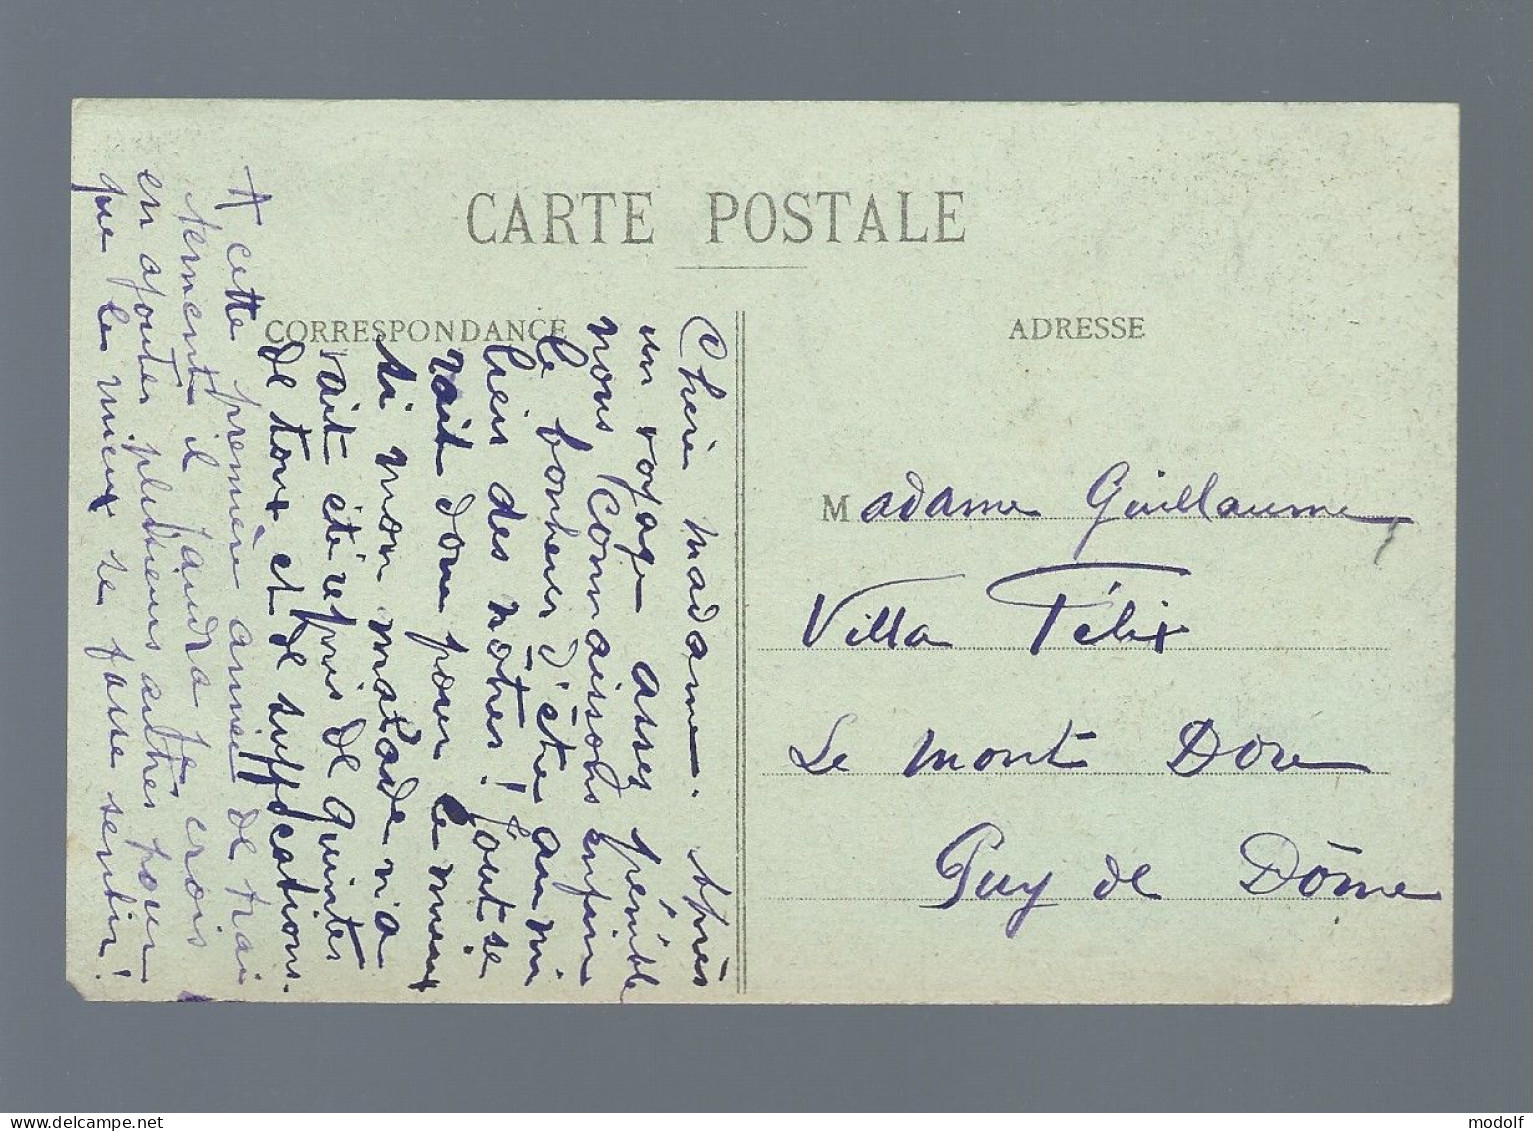 CARTE POSTALE
CORRESPONDANCE
ADRESSE
Chère madame. Après
un voyage assez pénible
nous connaissons enfin
le bonheur d'être au mi
lieu des nôtres! tout se
rait donc pour le mieux
si mon malade n'a
vait été repris de quintes
de toux et de suffocations.
A cette première année de trai
tement il faudra je crois
en ajouter plusieurs autres pour
que le mieux se fasse sentir!
Madame Guillaume
Villa Félix
Le Mont Dore
Puy de Dôme
delcampe.net
modolf